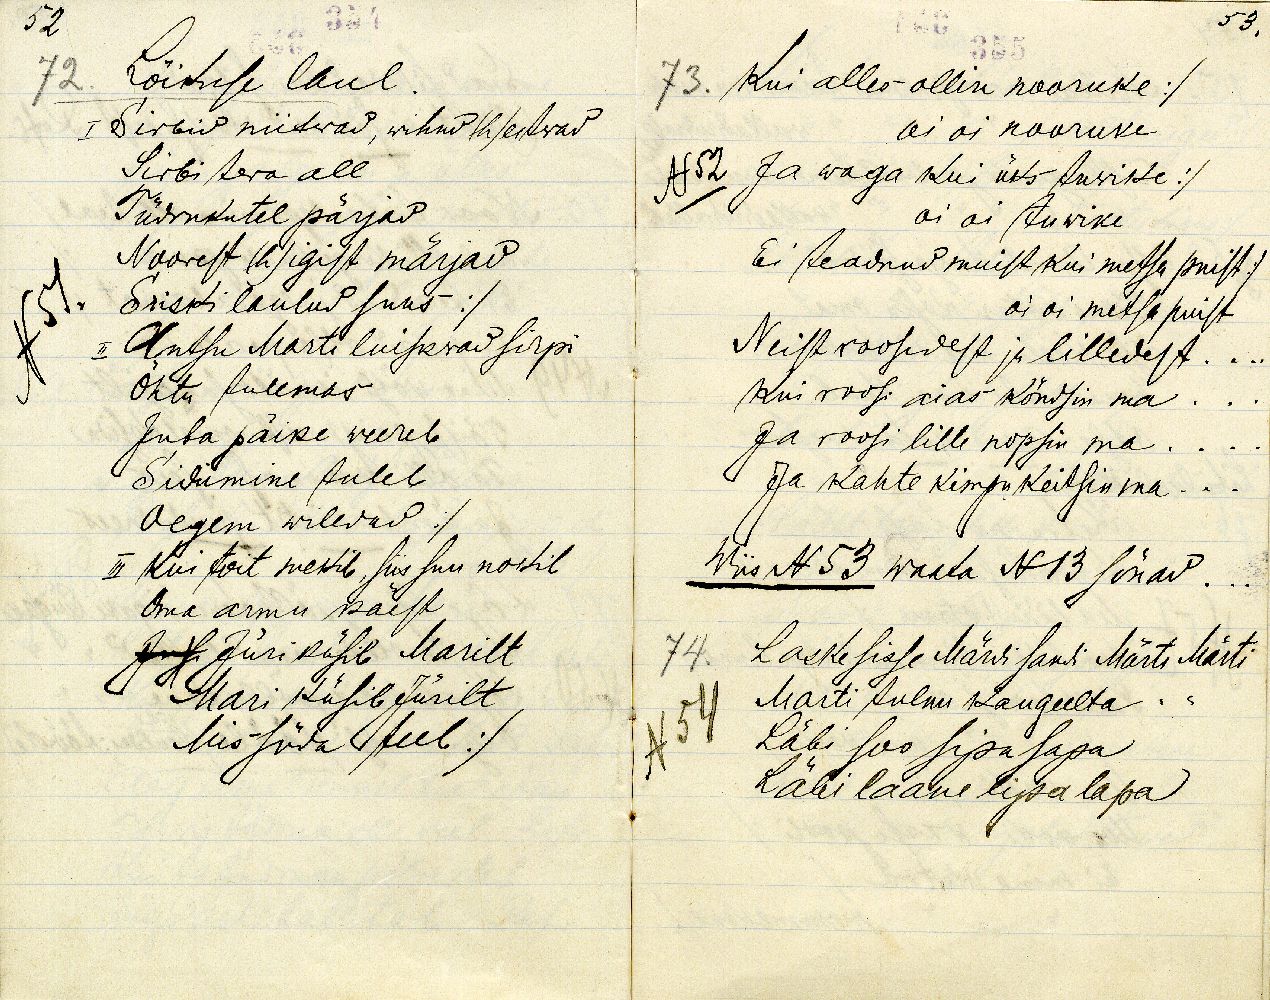 52
72. Lõikuse laul.
I Sirbid niitwad, wihud (h)eitwad
Sirbi tera all
Tüdrukutel pärjad
Noorest (h)igist märjad
N 51. Suiski laulud suus :/
II Antsu Marti luiskwad sirpi
Õhtu tulemas
Juba päike weereb
Sidumine tuleb
Oegem wiledad :/
III Kui töit mekib, siis suu nokib
Oma armu käest
Jüri küsib Marilt
Mari küsib Jürilt
Mis süda teeb :/
53.
355
73. Kui alles ollin nooruke :/
oi oi nooruke
N 52 Ja waga kui üks tuwike :/
oi oi tuwike
Ei teadnud muist kui metsa puist :/
oi oi metsa puist
Neist roosidest ja lilledest . . ..
Kui roosi aias kõndsin ma . . .
Ja roosi lille nopsin ma . . . .
Ja kahte kimpu keitsin ma . . .
Wiis N 53 waata N 13 sõnad . . .
74. Laske sisse Märdi sandi Märti Märti
N 54 Marti tulnu kaugeelta . "
Läbi soo sipa sapa
Läbi laane lipa lapa